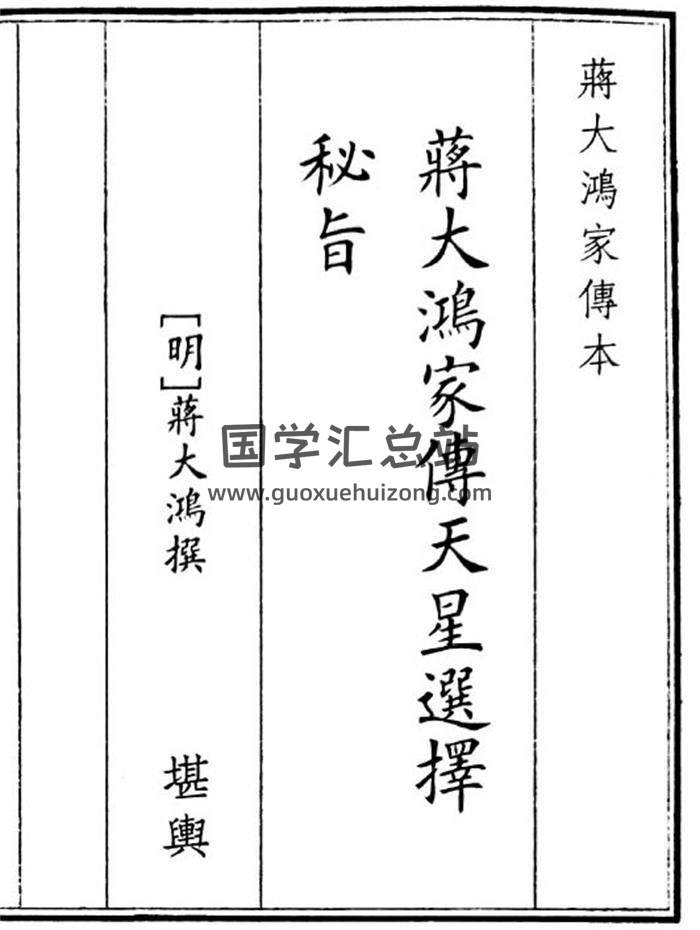 蔣大鴻家傳本
蔣大鴻家傳天星選擇
秘旨
[明]蔣大鴻撰
堪輿
国学汇总站
www.guoxuehuizong.com